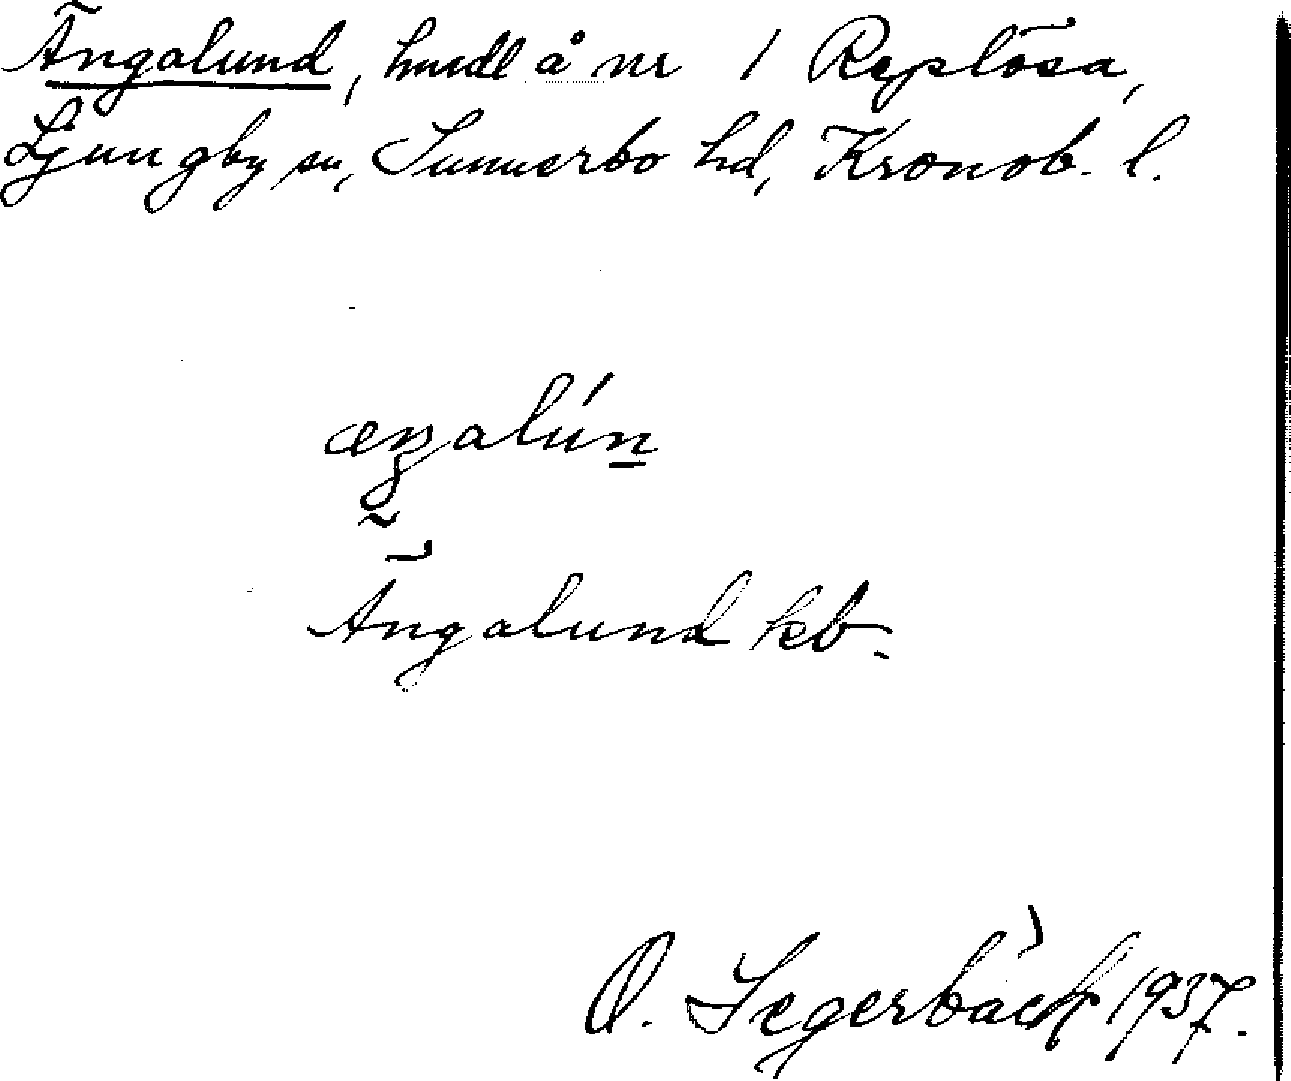 Ängalund, hmdl å nr 1 Replösa,
Ljungby sn, Sunnerbo hd, Kronob. l.
Ängalund kb.
O. Segerbäck 1937.